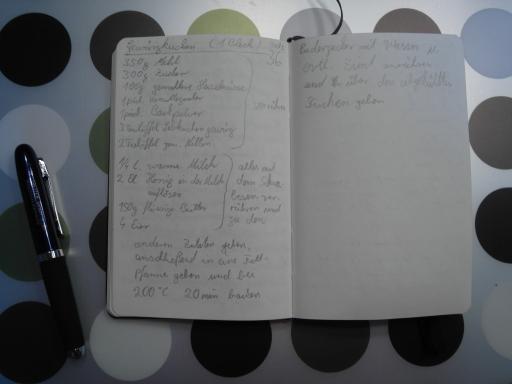 Gewürzkuchen (1 Blech)
350g Mehl
300g Zucker
100g gemahlene Haselnüsse
1 Pack. Vanillezucker
1 Pack. Backpulver
3 Teelöffel Lebkuchengewürz
2 Teelöffel gem. Nelken
verrühren
1/4 l warme Milch
2 El Honig in der Milch
auflösen
150g flüssige Butter
4 Eier
alles mit
dem Schnee-
besen ver-
rühren und
zu den
anderen Zutaten geben,
anschließend in eine Fett-
Pfanne geben und bei
200°C 20 min backen
Puderzucker mit Wasser u.
evtl. Zimt anrühren
und über den abgekühlten
Kuchen geben